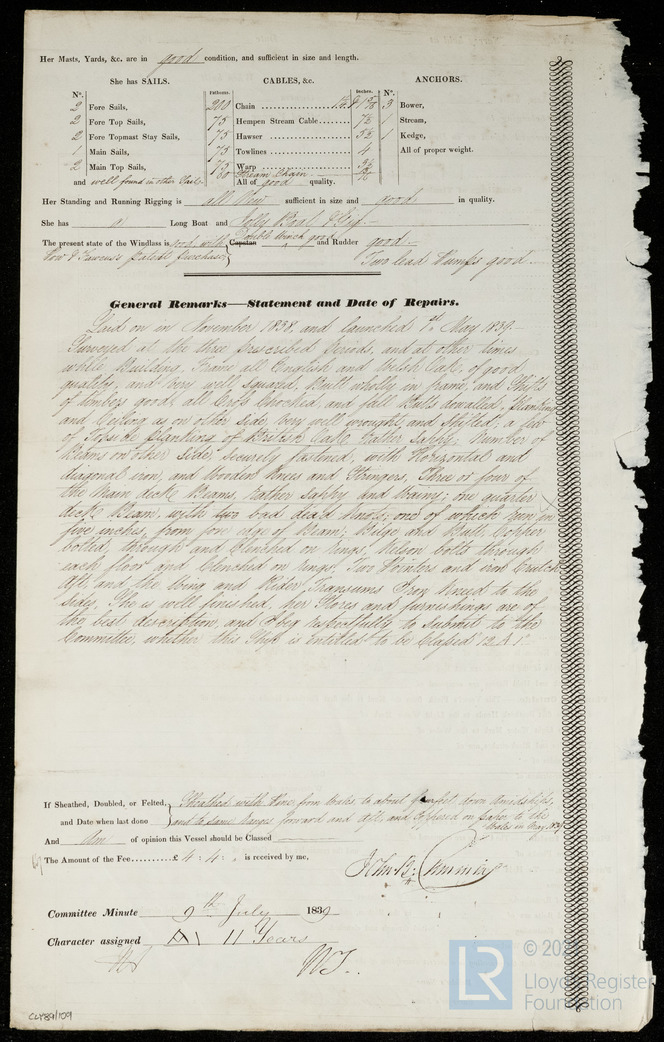 Her Masts, Yards, &c. are in good condition, and sufficient in size and length.
She has SAILS. CABLES, &c. ANCHORS.
Nº. Fathoms. Inches. Nº.
2 Fore Sails, 200 Chain 3 Bower,
2 Fore Top Sails, 75 Hempen Stream Cable 7½ 1 Stream,
2 Fore Topmast Stay Sails, 75 Hawser 5½ 1 Kedge,
1 Main Sails, 75 Towlines 4 All of proper weight.
2 Main Top Sails, Warp
and well found in other Sails Stream Chain
All of good quality.
Her Standing and Running Rigging is all New sufficient in size and good in quality.
She has a Long Boat and Jolly Boat & Gig.
The present state of the Windlass is good with Capstan Double Winch good and Rudder good
Patent Purchase Two lead Pumps good
General Remarks—Statement and Date of Repairs.
Laid on in November 1838, and launched 1st May 1839.
Surveyed at the three prescribed periods, and at other times
while Building, Frame all English and Welsh Oak, of good
quality, and very well squared, Built wholly in frame, and Shifts
of timbers good, all Cross Chocked, and full Butts dowalled, Planking
and Ceiling as on other side, very well wrought, and Shifted; a few
of Topside planking of British Oak rather Sappy; Number of
Beams on other side securely fastened, with Horizontal and
diagonal iron, and Wooden Knees and Stringers, Three or four of
the Main deck Beams, rather Sappy and Wainy; one quarter
deck Beam, with two bad dead knots; one of which runs in
five inches, from fore edge of Beam; Bilge and Butts Copper
bolted, through and Clenched on rings, Kelson bolts through
each floor and Clenched on rings, Two Pointers and iron Crutch
Aft, and the Wing and Rider Transums Iron Kneed to the
side, She is well finished, her Stores and furnishings are of
the best description, and I beg respectfully to submit to the
Committee, whether this Ship is entitled to be Classed 12 A 1.
If Sheathed, Doubled, or Felted, Sheathed with from Wales to about four feet down Amidships,
and Date when last done and to same ranges forward and aft, and Coppered on paper to the
Wales in May 1839
And Am of opinion this Vessel should be Classed
The Amount of the Fee £ 4 : 4 : „ is received by me,
John B: Cumming
Committee Minute 9th July 1839
Character assigned A1 11 Years
CLY89/109
LR
Lloyd's Register
Foundation